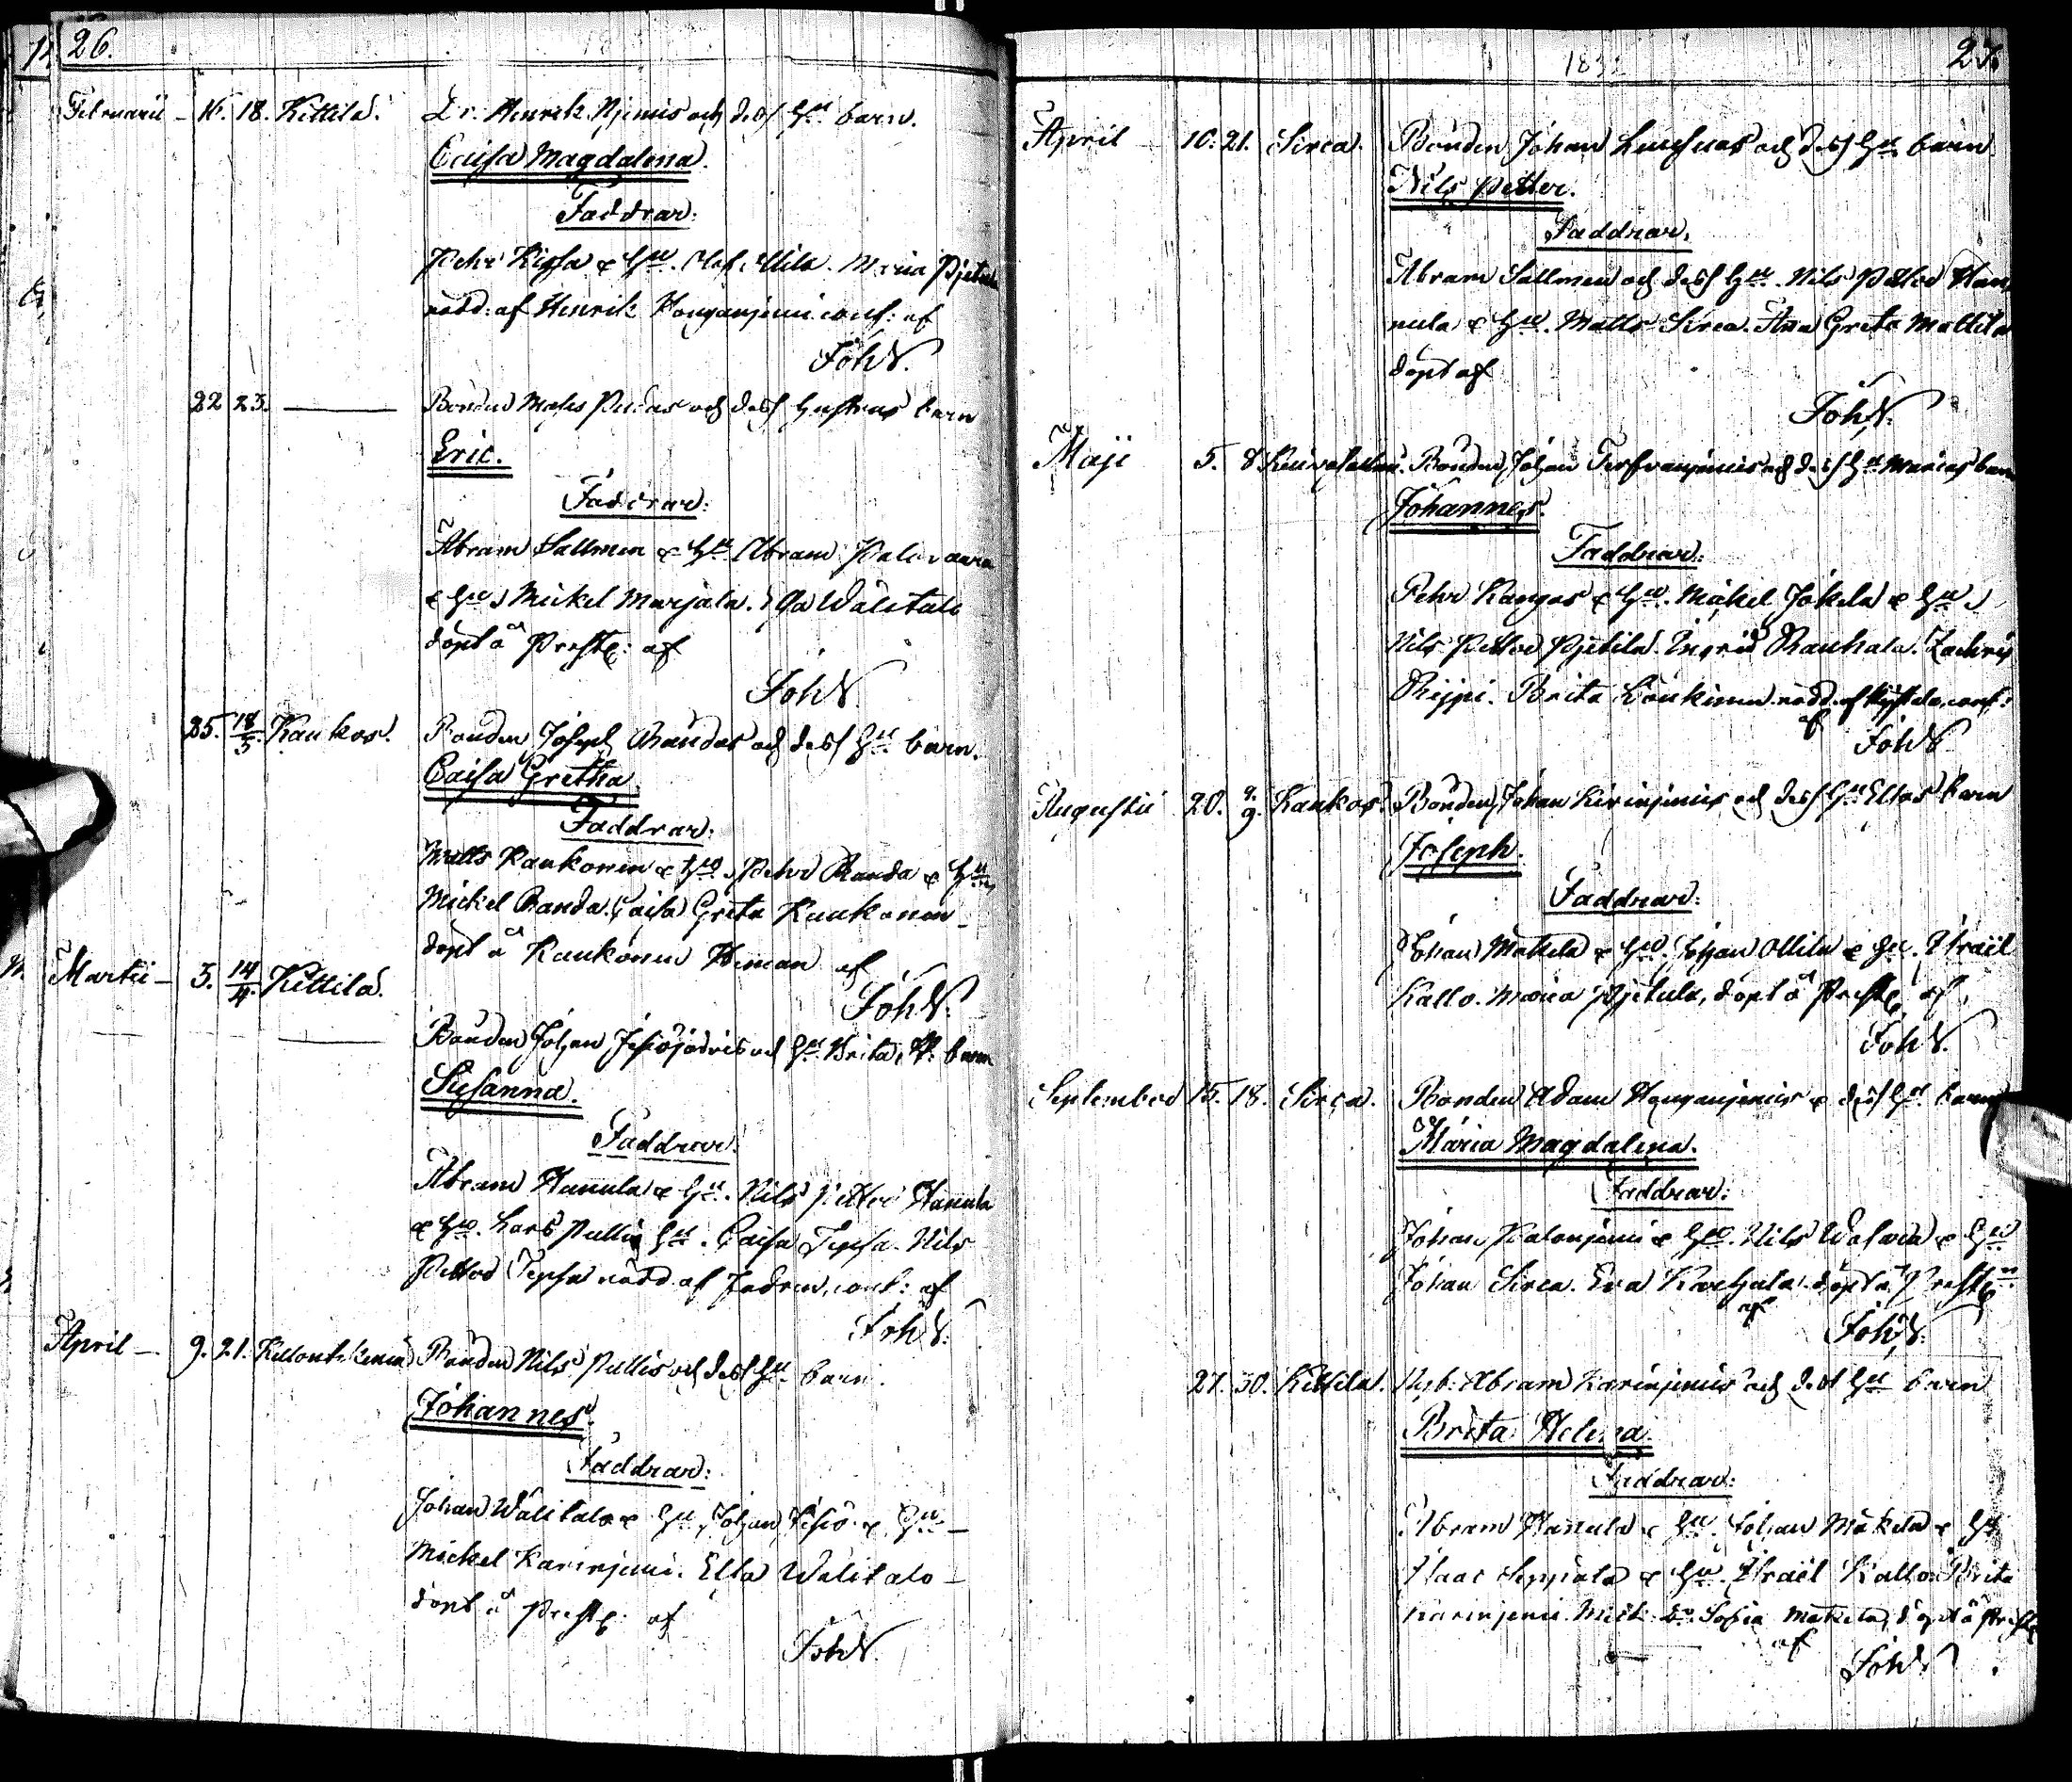 26.
Februarii – 16. 18. Kittilä. Dr. Henrik Njemis och dess Hu barn.
Caisa Magdalena.
Faddrar:
Pehr Kissa & Hu. Olof Ollila. Maria Pjetula
nödd. af Henrik Honganjemi conf: af
Joh N.
22 23. — Bonden Mats Pudas och dess Hustrus barn
Eric.
Faddrar:
Abram Sallmen & Hu Abram Palovaara
& Hu, Mickel Marjala. Walitalo
döpt å Prestg: af
Joh N.
25. 18/3. Kaukos. Bonden Joseph Randas och dess Hu barn.
Caisa Gretha.
Faddrar:
Matts Kaukonen & Hu, Pehr Randa & Hu,
Mickel Randa. Caisa Greta Kaukonen –
döpt å Kaukonen Heman af
Joh N.
Martii – 3. 14/4. Kittilä.
— Bonden Johan Jesiöjärvis och Hu Brita barn
Susanna.
Faddrar:
Abram Hanula & Hu. Nils Petter Hanula
& Hu. Lars Pullis Hu. Caisa Tepsa. Nils
Petter Tepsa nödd. af Fadren, conf: af
Joh N.
April – 9. 21. Bonden Nils Pullis och dess Hu barn.
Johannes.
Faddrar:
Johan Wälitalo & Hu, Johan Jesiö & Hu –
Mickel Karinjemi. Ella Walitalo –
döpt å Prestg: af
Joh N.
183
27.
April 10. 21. Sirca. Bonden Johan och dess Hu barn
Nils Petter.
Faddrar.
Abram Sallmen och dess Hu. Nils Petter Han-
nula & Hu. Matts Sirca. Ana Greta Mattila
döpt af
Joh N.
Maji 5. 8 Bonden Johan och dess Hu Marias barn
Johannes.
Faddrar:
Pehr Kangas & Hu. Mickel Jokela & Hu
Nils Petter Pjetilä. Ingrid Rauhala. Zachris
Brita nödd. af conf:
af Joh N.
Augustii 20. 9. Kaukos. Bonden Johan Kirinjemis och dess Hu Ellas barn
Joseph.
Faddrar:
Johan Mattila & Hu. Johan Ollila & Hu. Israël
Kallo. Maria Pjetula, döpt å Prestg af
Joh N.
September 15. 18. Sirca. Bonden Adam Honganjemis & dess Hu barn
Maria Magdalena.
Faddrar:
Johan Palonjemi & Hu. Nils & Hu
Johan Sirca. Eva döpt å Prestg
af Joh N.
27. 30. Kittilä. Nyb. Abram Karinjemis och dess Hu barn
Brita Helena.
Faddrar:
Abram Hanula & Hu. Johan Mäkelä & Hu
Isaac Seppälä & Hu. Israël Kallo. Brita
Karinjemi. Mick: Sofia Mäkelä, döpt å Prestg
af
Joh N.